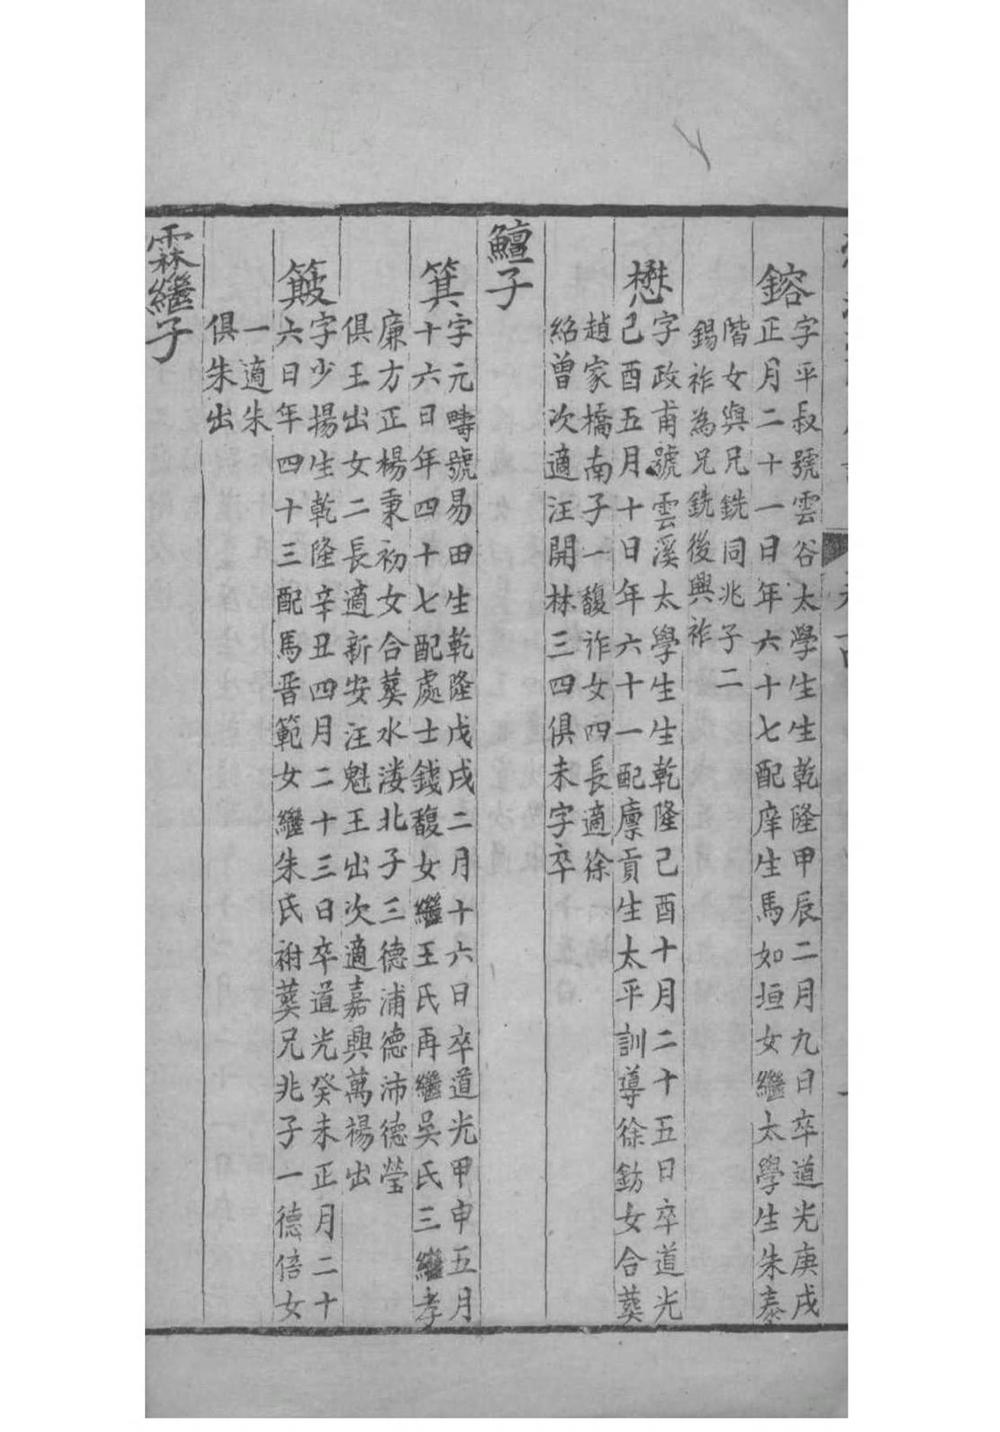 鎔
字平叔號雲谷太學生生乾隆甲辰二月九日卒道光庚戌
正月二十一日年六十七配庠生馬如垣女繼太學生朱泰
階女與兄銑同兆子二
錫祚為兄銑後興祚
懋
字政甫號雲溪太學生生乾隆己酉十月二十五日卒道光
己酉五月十日年六十一配廪貢生太平訓導徐鈁女合葬
趙家橋南子一馥祚女四長適徐
紹曾次適汪開林三四俱未字卒
鱣子
箕
字元疇號易田生乾隆戊戌二月十六日卒道光甲申五月
十六日年四十七配處士錢馥女繼王氏再繼吳氏三繼孝
廉方正楊秉初女合葬水淒北子三德浦德沛德瑩
俱王出女二長適新安汪魁王出次適嘉興萬楊出
簸
字少揚生乾隆辛丑四月二十三日卒道光癸未正月二十
六日年四十三配馬晋範女繼朱氏祔葬兄兆子一德倍女
一適朱
俱朱出
霖繼子